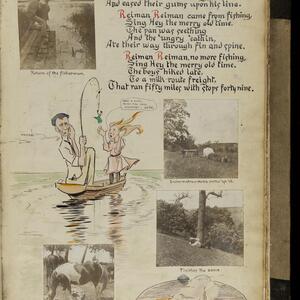 And eased their gums upon his line.
Reiman Reiman came from fishing,
Sing Hey the merry old time.
The pan was seething
And the "ungry" eatin,
Ate their way through fin and spine.
Reiman Reiman, no more fishing,
Sing Hey the merry old time.
The boys hiked late
To a milk route freight,
That ran fifty miles with stops forty nine.
Return of the fisherman.
Finding the range